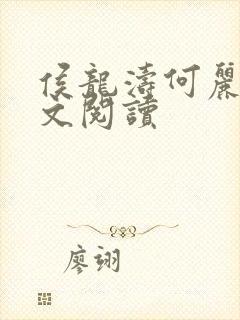 侯龍濤何麗
文閱讀
廖翊